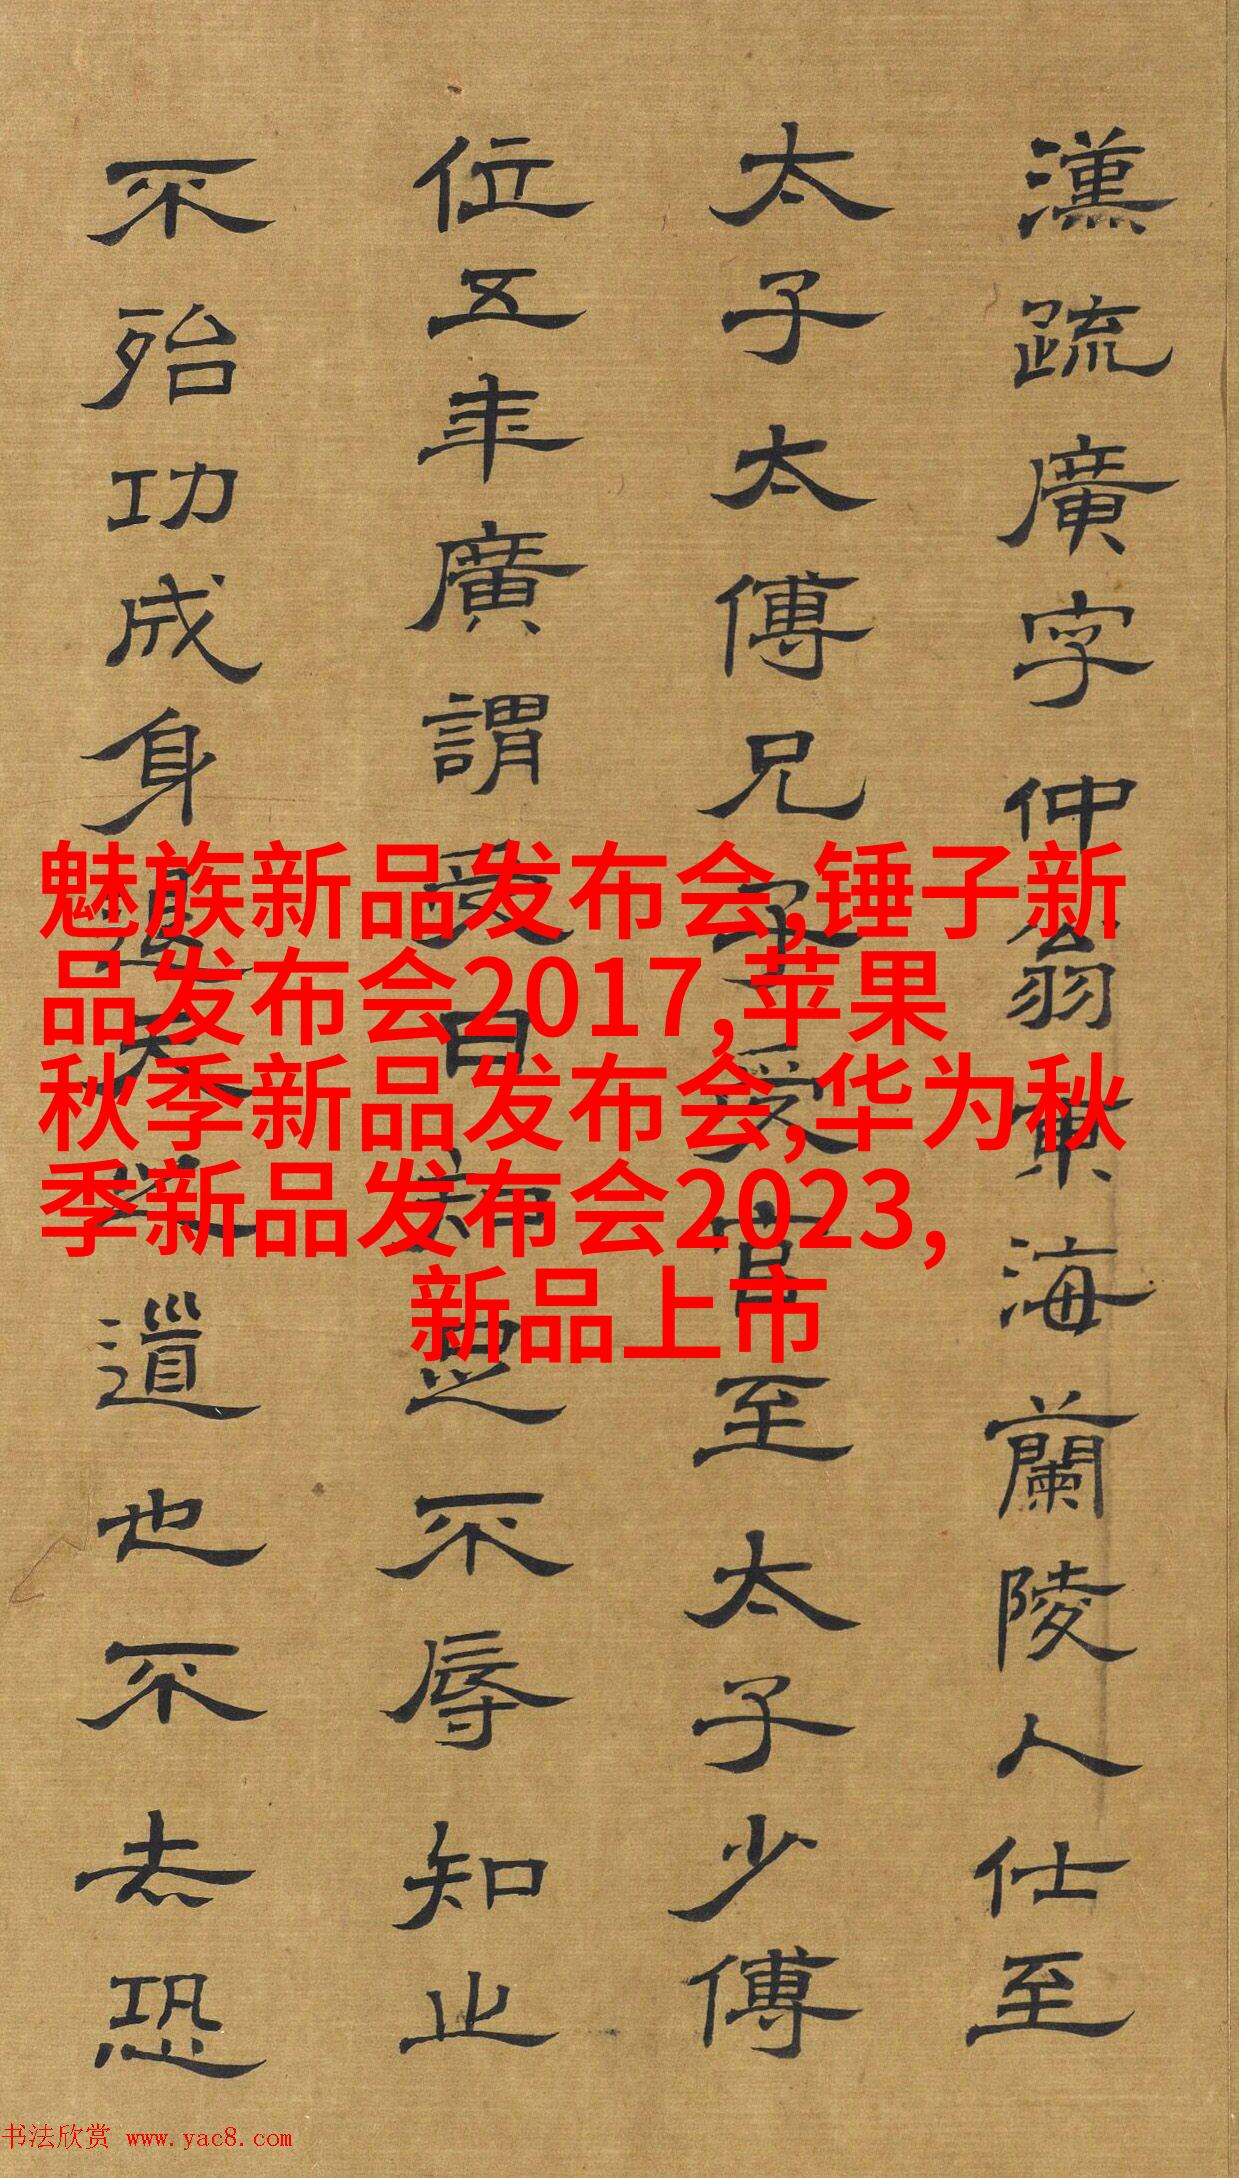 漢疏廣字仲翁東海蘭陵人仕至
太子太傅兄子受官至太子少傅
位五年廣謂受曰知足不辱知止
不殆功成身退天之道也不去恐
魅族新品发布会,锤子新
品发布会2017,苹果
秋季新品发布会,华为秋
季新品发布会2023,
新品上市
书法欣赏 www.yac8.com